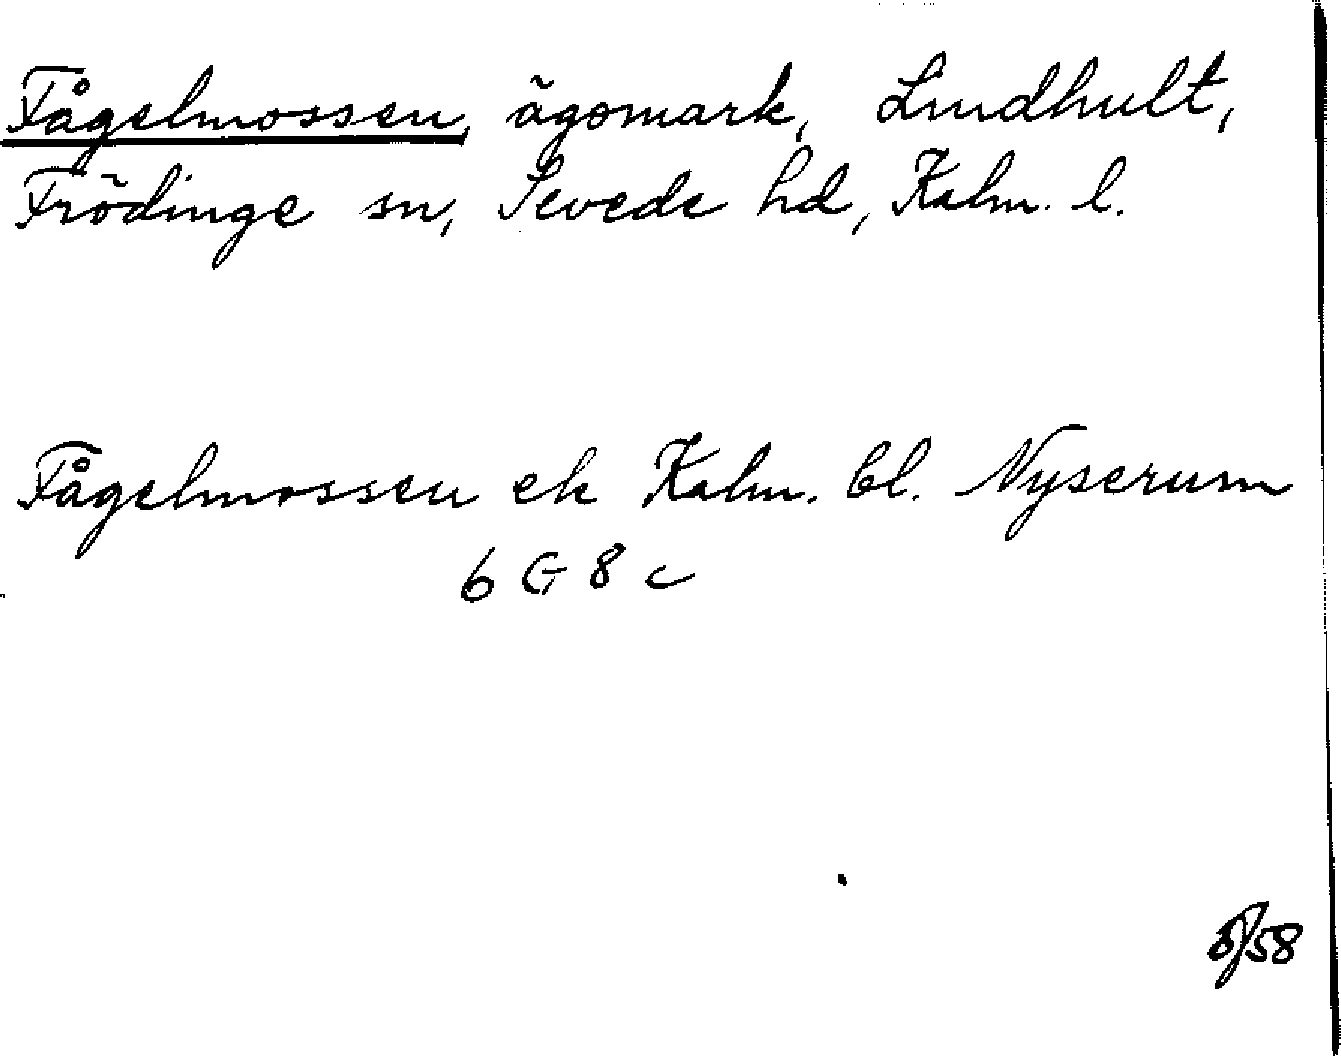 Fågelmossen, ägomark, Lindhult,
Frödinge sn, Sevede hd, Kalm. l.
Fågelmossen ek Kalm. bl. Nyserum
6 G 8 c